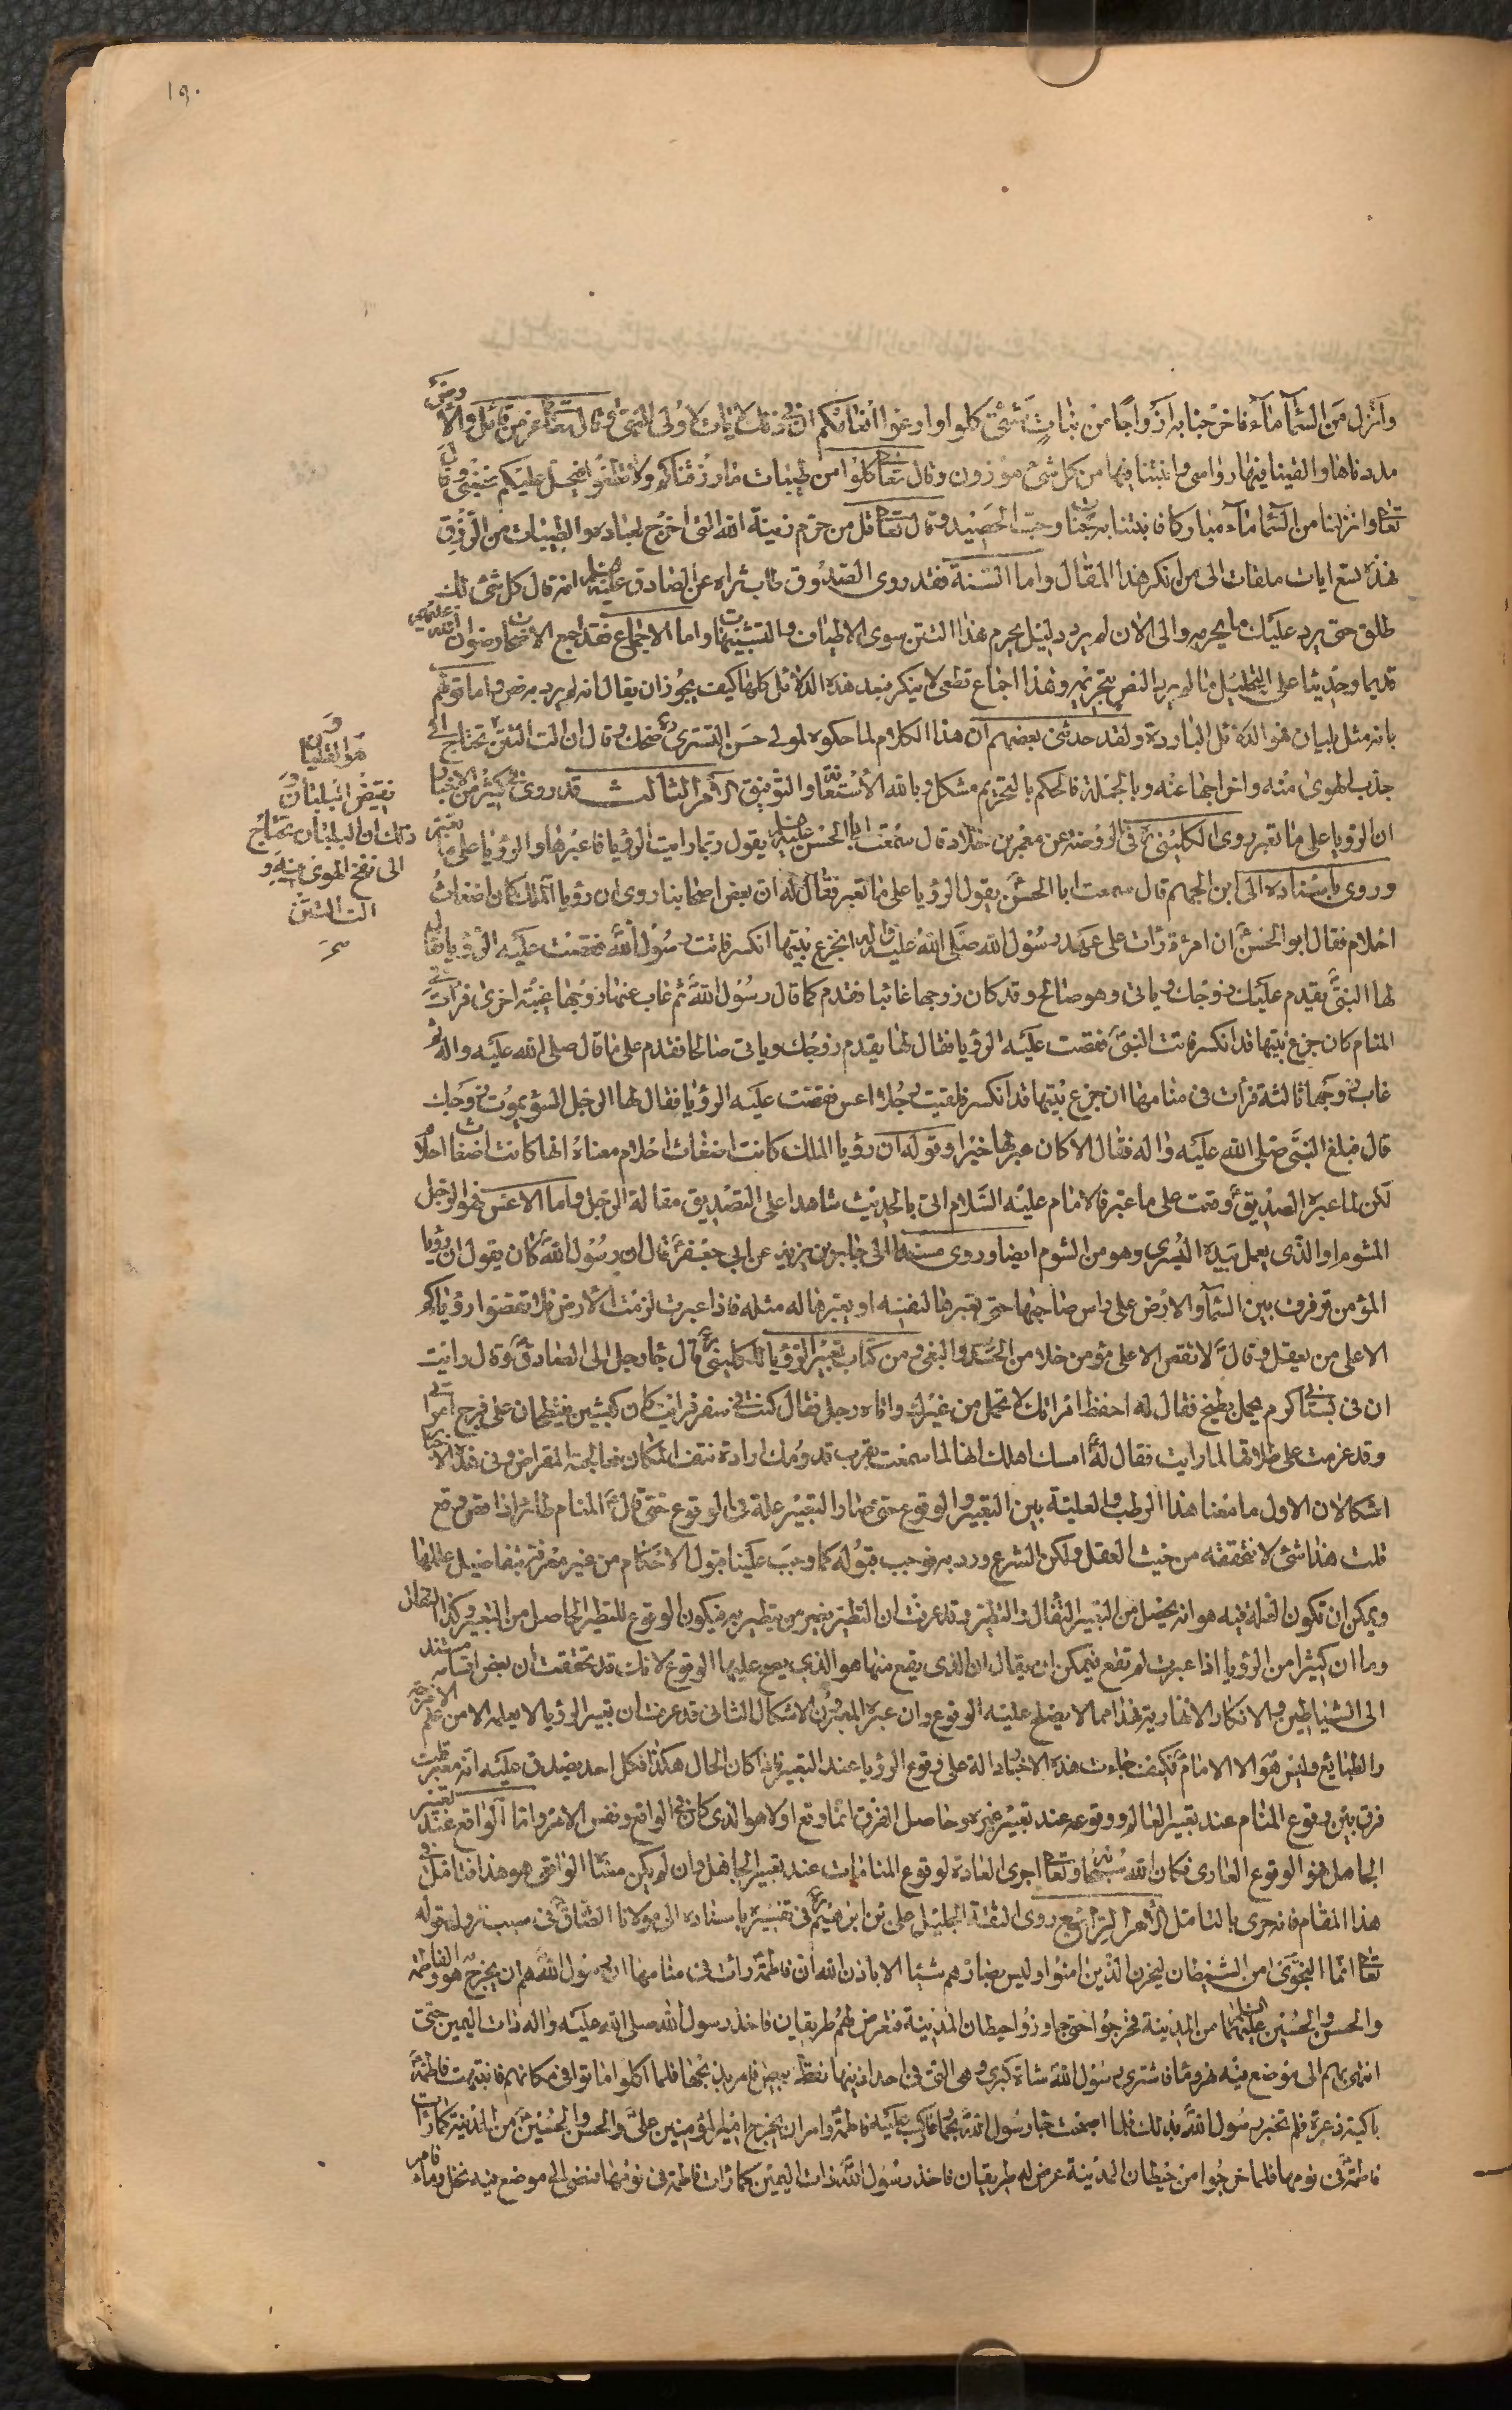 ١٩٠
وانزل من السمآء مآء فاخرجنا به ازواجا من نبات شتى كلوا وارعوا انعامكم ان فى ذلك لايات لاولى النهى وقال تعا عز من قائل والارض
مددناها والقينا فيها رواسى وانبتنا فيها من كل شئ موزون وقال تعا كلوا من طيبات ما رزقناكم ولا تطغوا فيه فيحل عليكم غضبى وقال
تعا وانزلنا من السمآء مآء مباركا فانبتنا به جنات وحب الحصيد وقال تعا قل من حرم زينة الله التى اخرج لعباده والطيبات من الرزق
فهذه تسع ايات ملقات الى من انكر هذا المقال واما السنة فقد روى الصدوق طاب ثراه عن الصادق عليه السلم انه قال كل شئ لك
طلق حتى يرد عليك ما يحرمه والى الان لم يرد دليل يحرم هذا التتن سوى الاطياف والتشبيهات واما الاجماع فقد اجمع الاصحاب رضوان الله عليهم
قديما وحديثا على التحليل ما لم يرد النص بتحريمه وهذا اجماع قطعى لا ينكر فبعد هذه الدلائل كلها كيف يجوز ان يقال انه لم يرد به نص واما قولهم
بانه مثل بليان فهو الدلائل الباردة ولقد حدثنى بعضهم ان هذا الكلام لما حكوه لمولى حسن التسترى ره ضحك وقال ان الت التتن تحتاج الى
جذب الهوى منه واخراجها عنه وبالجملة فالحكم بالتحريم مشكل وبالله الاستعانة والتوفيق الامر الثالث قد روى فى كثير من الاخبار
ان الرؤيا على ما تعبر روى الكلينى ره فى الروضة عن معمر بن خلاد قال سمعت ابا الحسن عليه السلم يقول ربما رايت الرؤيا فاعبرها والرؤيا على ما تعبر
وروى باسناده الى ابن الجهم قال سمعت ابا الحسن يقول الرؤيا على ما تعبر فقال له ان بعض اصحابنا روى ان رؤيا الملك كان اضغاث
احلام فقال ابو الحسن ان امرئة رات على عهد رسول الله صلى الله عليه واله ان جذع بيتها انكسر فاتت رسول الله فقصت عليه الرؤيا فقال
لها النبى يقدم عليك زوجك وياتى وهو صالح وقد كان زوجها غائبا فقدم كما قال رسول الله ثم غاب عنها زوجها غيبة اخرى فرات فى
المنام كان جذع بيتها قد انكسر فاتت النبى فقصت عليه الرؤيا فقال لها يقدم زوجك وياتى صالحا فقدم على ما قال صلى الله عليه واله ثم
غاب زوجها ثالثة فرات فى منامها ان جذع بيتها قد انكسر فلقيت رجلا اعسر فقصت عليه الرؤيا فقال لها الرجل السؤ يموت زوجك
قال فبلغ النبى صلى الله عليه واله فقال الا كان عبر لها خيرا وقوله ان رؤيا الملك كانت اضغاث احلام معناه انها كانت اضغاث احلام
لكن لما عبره الصديق وقعت على ما عبر فالامام عليه السلام اتى بالحديث شاهدا على التصديق مقالة الرجل واما الاعسر فهو الرجل
المشوم او الذى يعمل بيده اليسرى وهو من الشوم ايضا وروى مسندا الى جابر بن يزيد عن ابى جعفر قال ان رسول الله كان يقول ان رؤيا
المؤمن ترفرف بين السمآء والارض على راس صاحبها حتى يعبرها لنفسه او يعبرها له مثله فاذا عبرت لزمت الارض فلا تقصوا رؤياكم
الا على من يعقل وقال لا تقص الا على مؤمن خلا من الحسد والبغى ومن كتاب تعبير الرؤيا للكلينى ره قال جآء رجل الى الصادق وقال رايت
ان فى بستانى كرم يحمل بطيخ فقال له احفظ امراتك لا تحمل من غيرك واتاه رجل فقال كنت فى سفر فرايت كان كبشين ينتطحان على فرج امراتى
وقد عزمت على طلاقها لما رايت فقال له امسك اهلك انها لما سمعت بقرب قدومك ارادة نتف المكان فعالجته بالمقراض وفى هذه الاخبار
اشكالان الاول ما معنا هذا الربط والعلية بين التعبير والوقوع حتى صار التعبير علة فى الوقوع حتى قال المنام طائر اذا قص وقع
قلت هذا شئ لا نحققه من حيث العقل ولكن الشرع ورد به فوجب قبوله كما وجب علينا قبول الاحكام من غير معرفة بتفاصيل عللها
ويمكن ان تكون العلة فيه هو انه يحصل من التعبير التفأل والتطير وقد عرفت ان التطير يضر من يتطير به فيكون الوقوع للتطير الحاصل من التعبير وكذا التفأل
وما ان كثيرا من الرؤيا اذا عبرت لم تقع فيمكن ان يقال ان الذى يقع منها هو الذى يصح عليها الوقوع لانك قد تحققت ان بعض اقسامه مستند
الى الشياطين والافكار النهارية فهذا مما لا يصلح عليه الوقوع وان عبره المعبرون الاشكال الثانى قد عرفت ان تعبير الرؤيا لا يعلمه الا من علم الامزجة
والطبائع وليس هو الا الامام فكيف جاءت هذه الاخبار دالة على وقوع الرؤيا عند التعبير فاذا كان الحال هكذا فكل احد يصدق عليه انه معبر قلت
فرق بين وقوع المنام عند تعبير العالم ووقوعه عند تعبير غيره وحاصل الفرق ان ما وقع اولا هو الذى كان فى الواقع ونفس الامر واما الواقع عند تعبير
الجاهل فهو الوقوع العادى فكان الله سبحانه وتعا اجرى العادة لوقوع المنامات عند تعبير الجاهل وان لم يكن معنا الواقعى هو هذا فتامل فى
هذا المقام فانه حرى بالتامل الامر الرابع روى الثقة الجليل على بن ابرهيم ره فى تفسيره باسناده الى مولانا الصادق فى سبب نزول قوله
تعا انما النجوى من الشيطان ليحزن الذين امنوا وليس بضارهم شيئا الا باذن الله ان فاطمة رات فى منامها ان رسول الله هم ان يخرج هو وفاطمة
والحسن والحسين عليهما السلم من المدينة فخرجوا حتى جاوزوا حيطان المدينة فتعرض لهم طريقان فاخذ رسول الله صلى الله عليه واله ذات اليمين حتى
انتهى بهم الى موضع فيه نخل وماء فاشترى رسول الله شاة كبرى وهى التى فى احد اذنيها نقط بيض فامر بذبحها فلما اكلوا ماتوا فى مكانهم فانتبهت فاطمة
باكية ذعرة فلم تخبر رسول الله بذلك فلما اصبحت جآء رسول الله بحمار فاركب عليه فاطمة وامر ان يخرج امير المؤمنين على والحسن والحسين من المدينة كما رات
فاطمة فى نومها فلما خرجوا من حيطان المدينة عرض له طريقان فاخذ رسول الله ذات اليمين كما رات فاطمة فى نومها فمضى الى موضع فيه نخل وماء فامر
نقيض البليان و
ذلك ان البليان يحتاج
الى نفخ الهوى فيه و
الت التتن